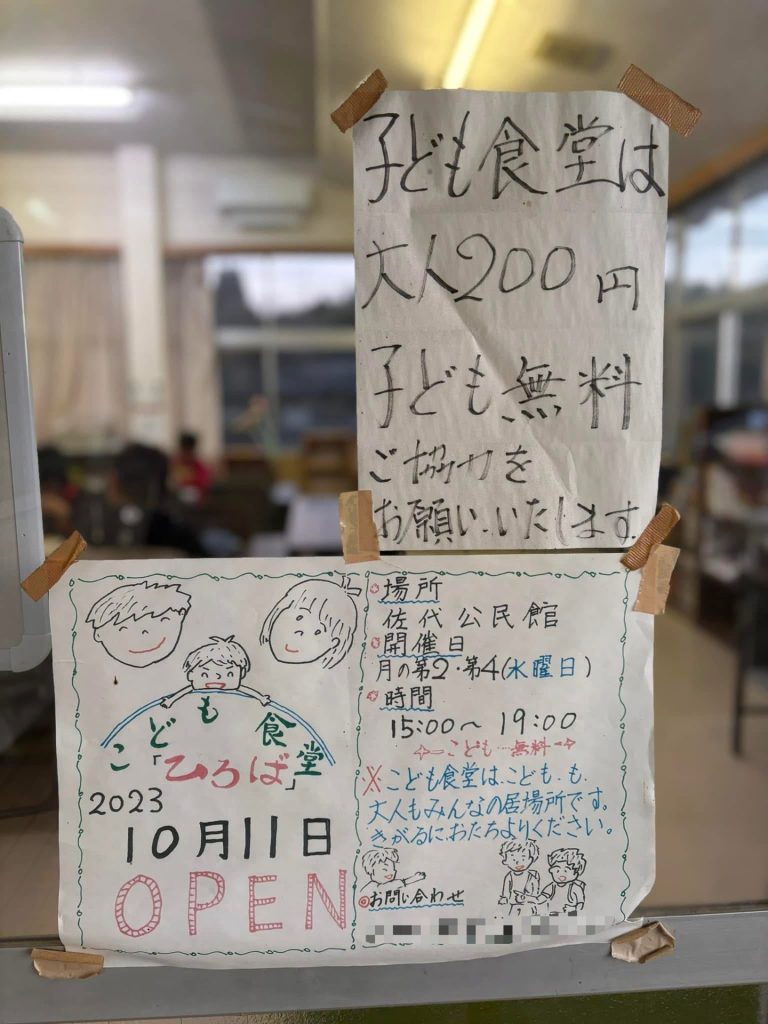 子ども食堂は
大人200円
子ども無料
ご協力を
お願いいたします。
こども食堂
「ひろば」
2023
10月11日
OPEN
場所
佐代公民館
開催日
月の第2・第4(水曜日)
時間
15:00〜19:00
こども…無料
※こども食堂は、こども、も、
大人もみんなの居場所です。
きがるにおたちよりください。
お問い合わせ